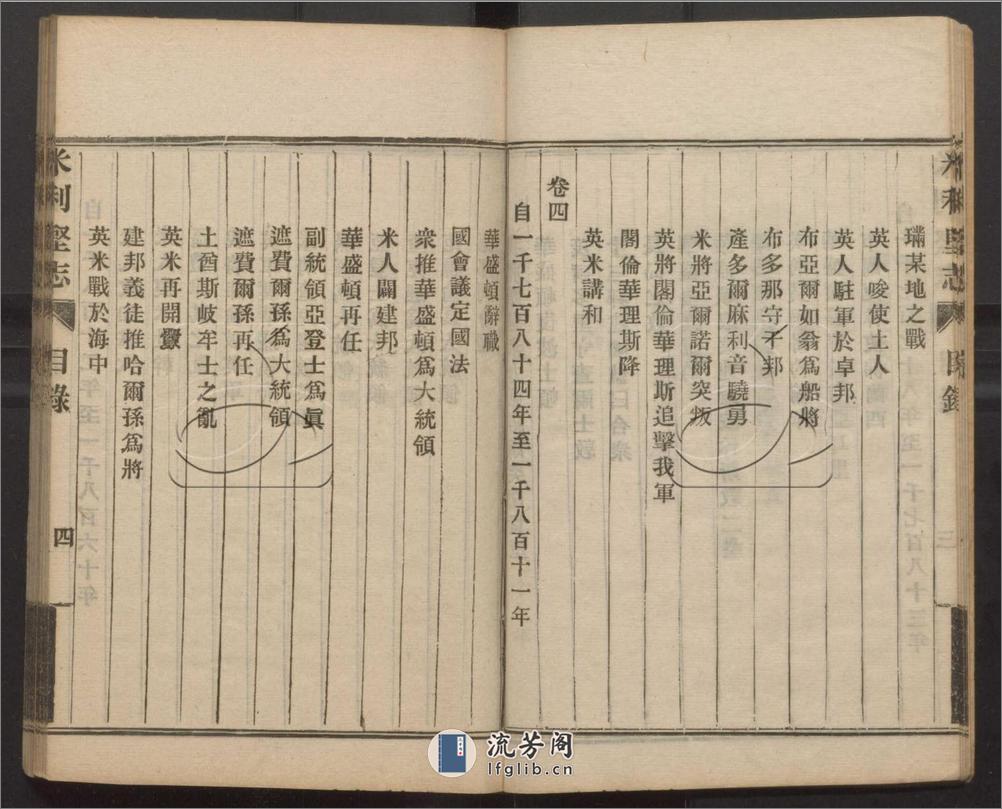 米利堅志
目錄
三
璊某地之戰
英人唆使土人
英人駐軍於卓邦
布亞爾如翁爲船將
布多那守不邦
產多爾麻利音驍勇
米將亞爾諾爾突叛
英將閣倫華理斯追擊我軍
閣倫華理斯降
英米講和
卷四
自一千七百八十四年至一千八百十一年
華盛頓辭職
國會議定國法
衆推華盛頓爲大統領
米人闢建邦
華盛頓再任
副統領亞登士爲眞
遮費爾孫爲大統領
遮費爾孫再任
土酋斯岐牟士之亂
英米再開釁
建邦義徒推哈爾孫爲將
英米戰於海中
米利堅志
目錄
四
流芳阁
lfglib.cn